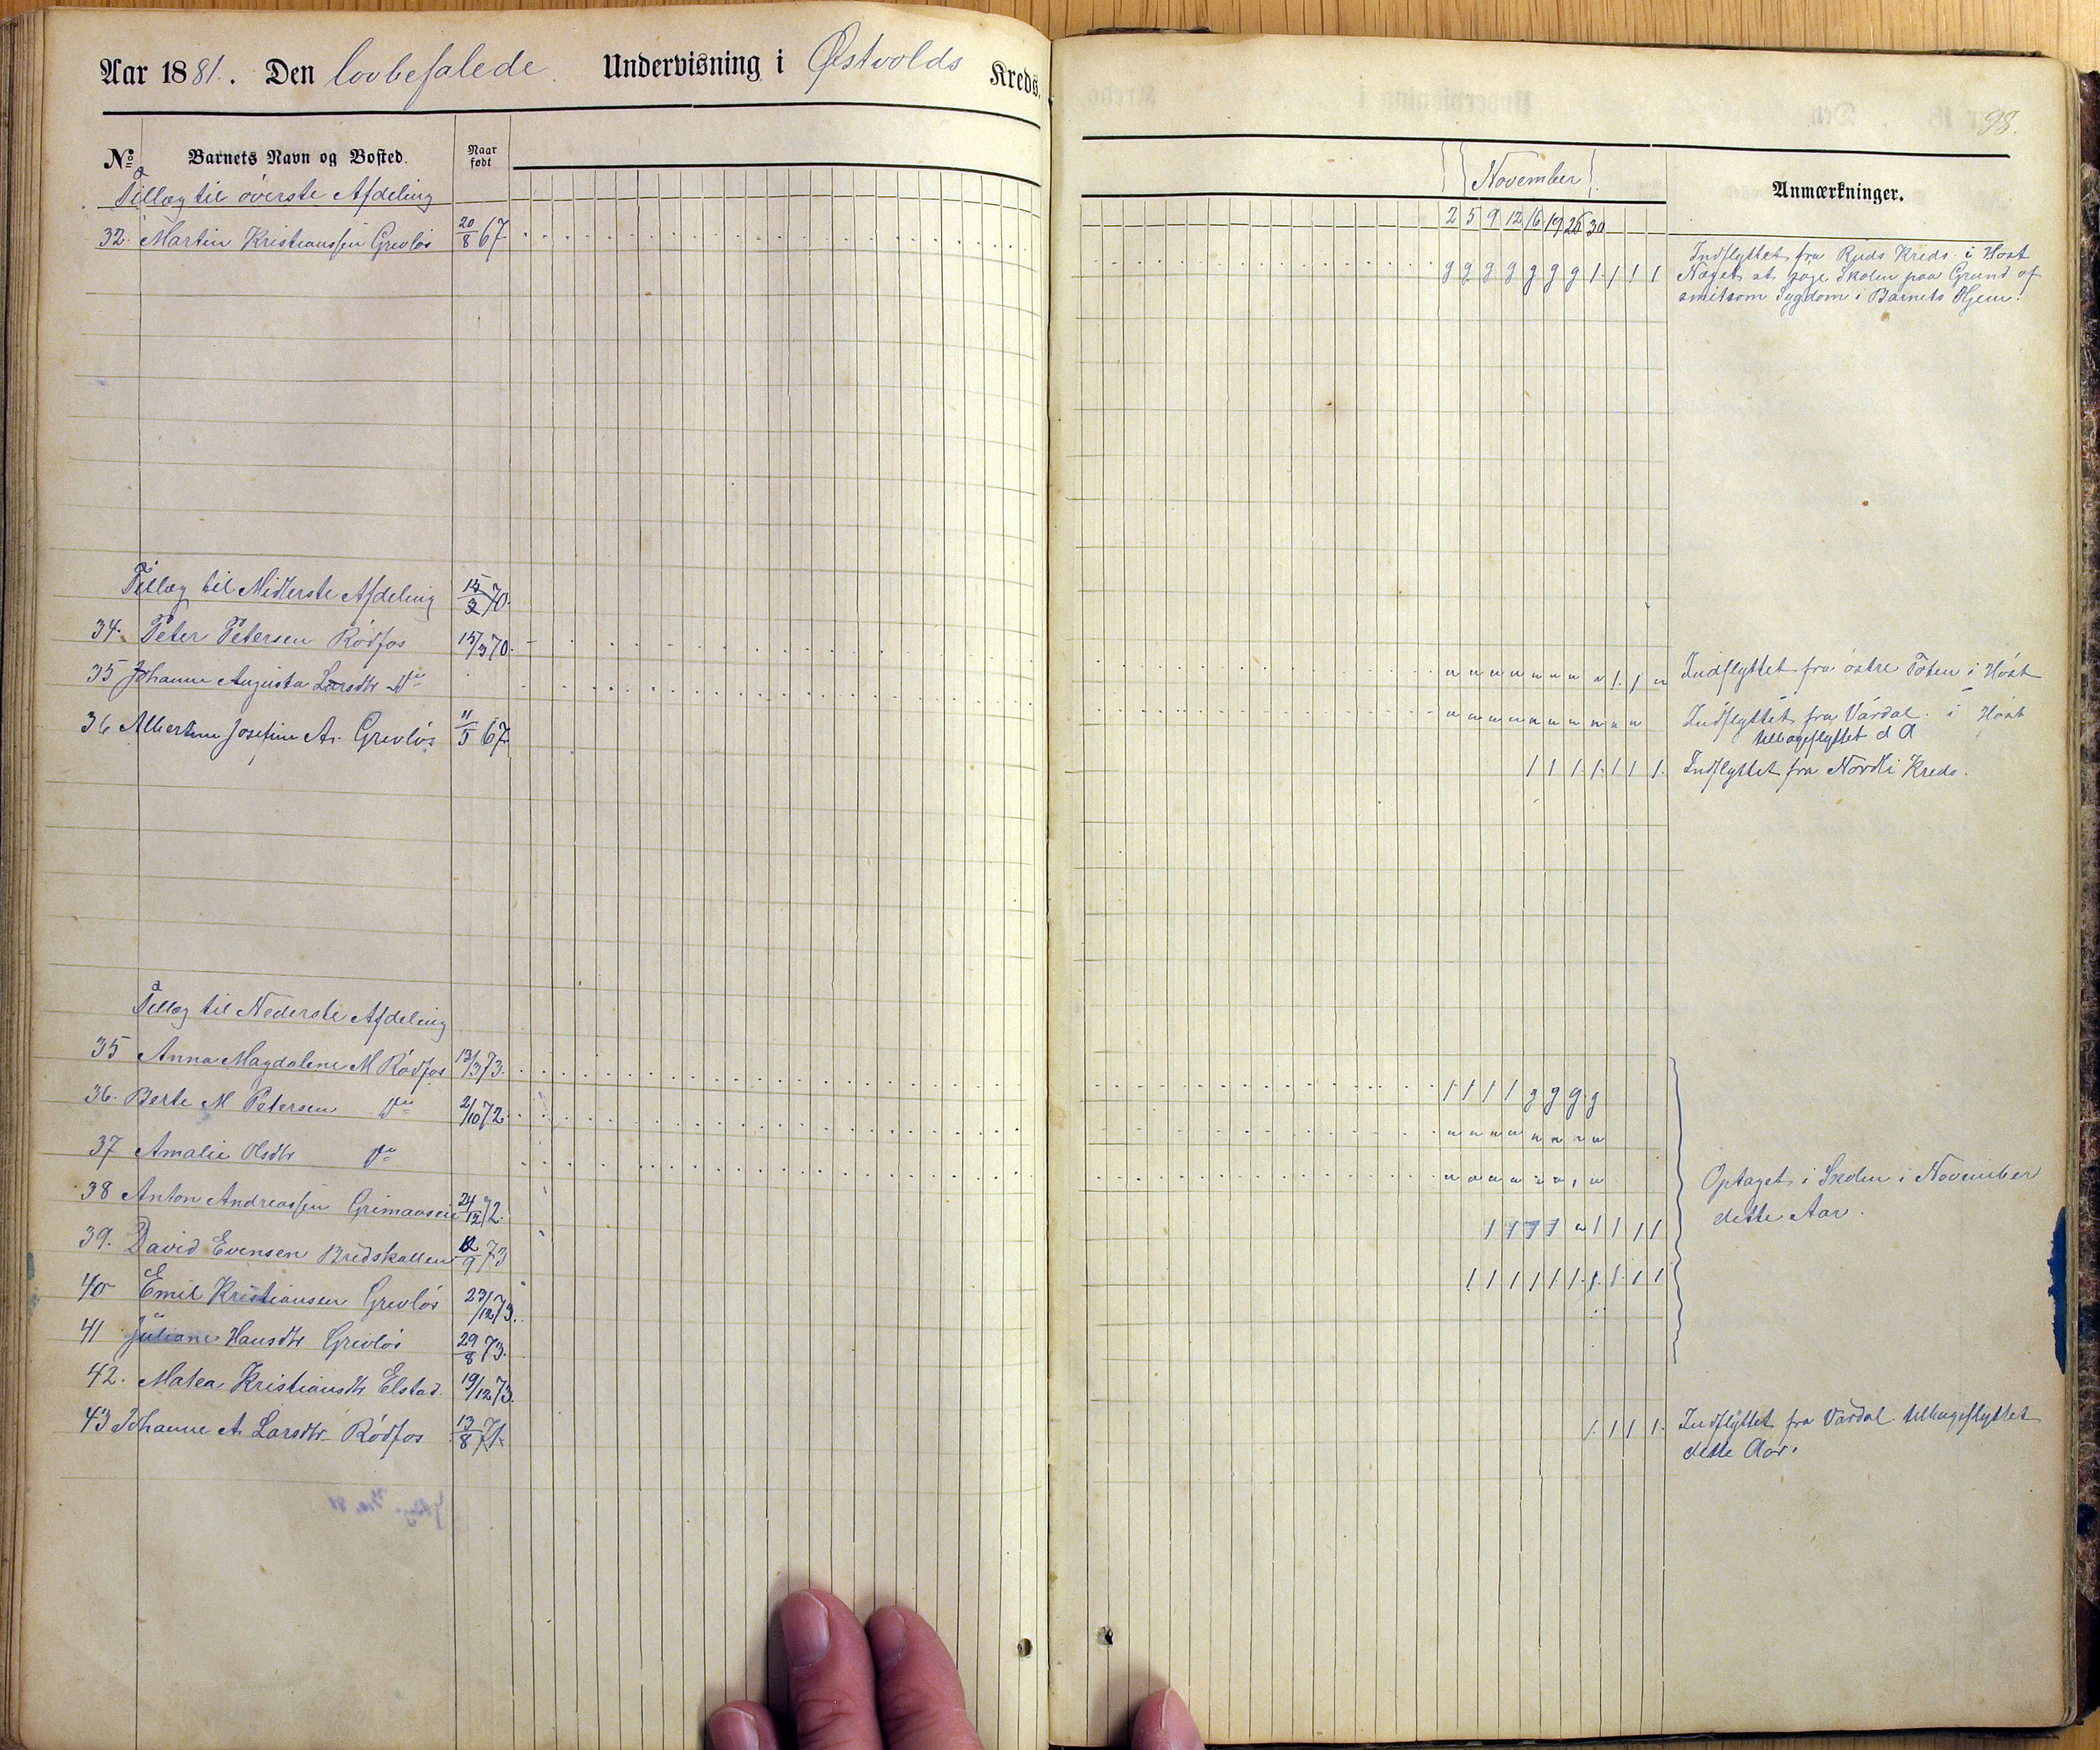 Aar 1881. Den lovbefalede Undervisning i Østvolds Kreds.
98.
No Barnets Navn og Bosted. Naar født
November
Anmærkninger.
2 5 9 12 16 19 26 30
Tillæg til øverste Afdeling
32. Martin Kristianssen Grevløs 20/8 67 g g g g g g g 1 1 1 1
Indflyttet fra Ruds Kreds i Høst
Nægtet at søge Skolen paa Grund af
smitsom Sygdom i Barnets Hjem.
Tillæg til Midterste Afdeling
34. Peter Petersen Rødfos 15/3 70. Indflyttet fra østre Toten i Høst
35 Johanne Augusta Larsdtr Do Indflyttet fra Vardal i Høst
tilbageflyttet d A
36 Albertine Josefine A. Grevløs 11/5 67 1 1 1 1 1 1 1 Indflyttet fra Nordli Kreds.
Tillæg til Nederste Afdeling
35 Anna Magdalene M Rødfos 13/3 73. 1 1 1 1 g g g g
36. Berte M Petersen Do 2/10 72.
37 Amalie Olsdtr Do
Optaget i Skolen i November
dette Aar.
38 Anton Andreassen 24/12 72.
39. David Evensen Bredskallen 9 73
40 Emil Kristiansen Grevløs 23/12 73.
41 Juliane Hansdtr Grevløs 29/8 73.
42. Matea Kristiansdtr Elstad. 19/12 73.
43 Johanne A. Larsdtr Rødfos 13/8 71 1 1 1 1 Indflyttet fra Vardal tilbageflyttet
dette Aar.